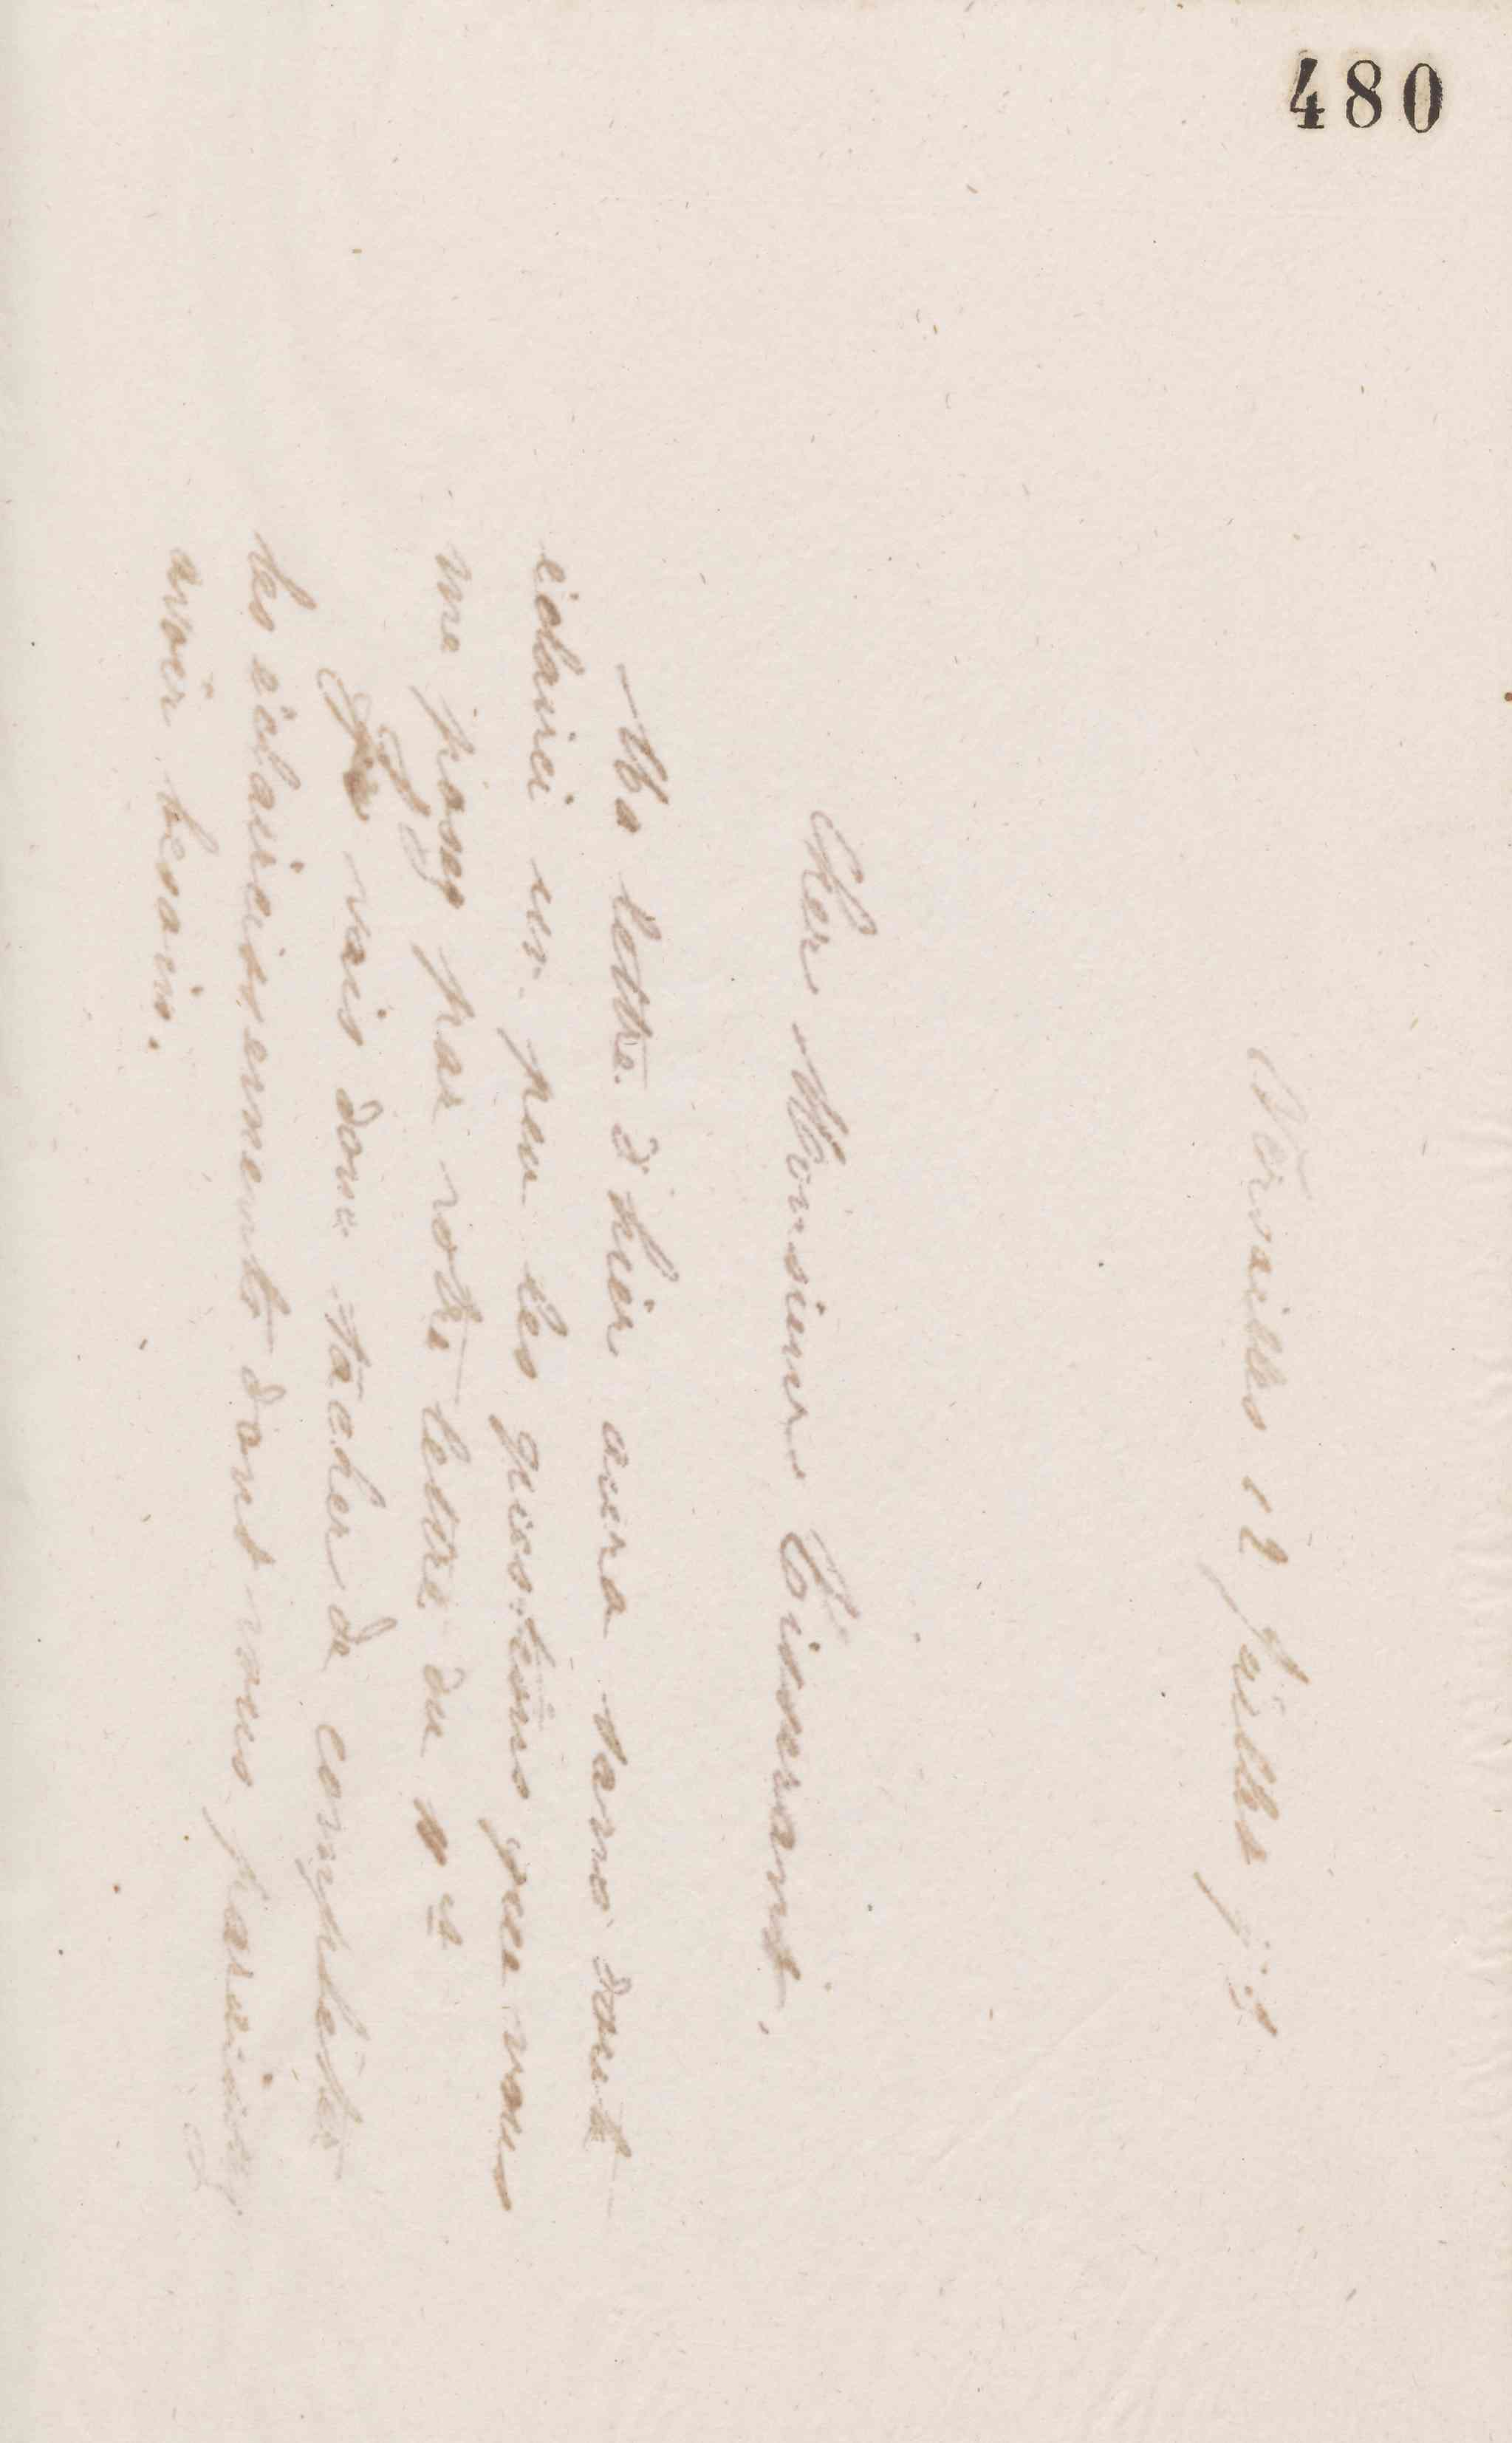 480
Versailles 12 Juillet 98
Cher Monsieur Tisserant,
Ma lettre d'hier aura sans doute
éclairci un peu les questions que vous
me posez par votre lettre du
Je vais donc tâcher de compléter
les éclaircissements dont vous
avoir besoin.